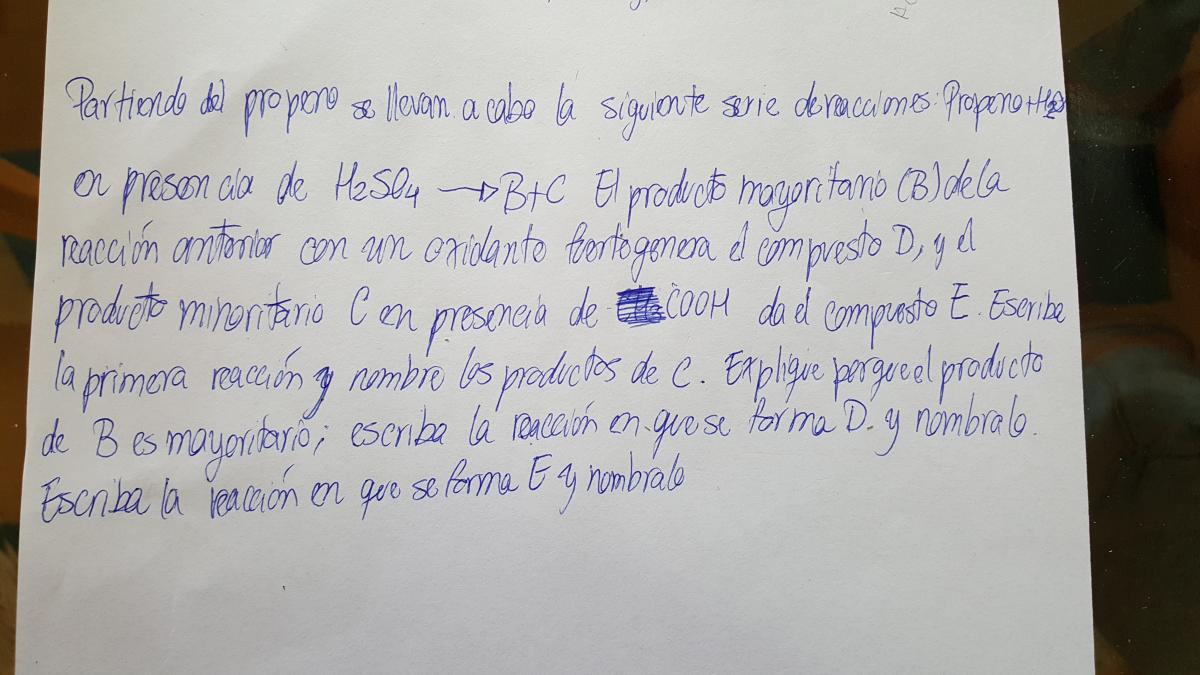 Partiendo del propeno se llevan a cabo la siguiente serie de reacciones: Propeno + H2O
en presencia de H2SO4 → B+C El producto mayoritario (B) de la
reacción anterior con un oxidante fuerte genera el compuesto D, y el
producto minoritario C en presencia de COOH da el compuesto E. Escriba
la primera reacción y nombre los productos de C. Explique porque el producto
de B es mayoritario; escriba la reacción en que se forma D. y nombralo.
Escriba la reacción en que se forma E y nombralo